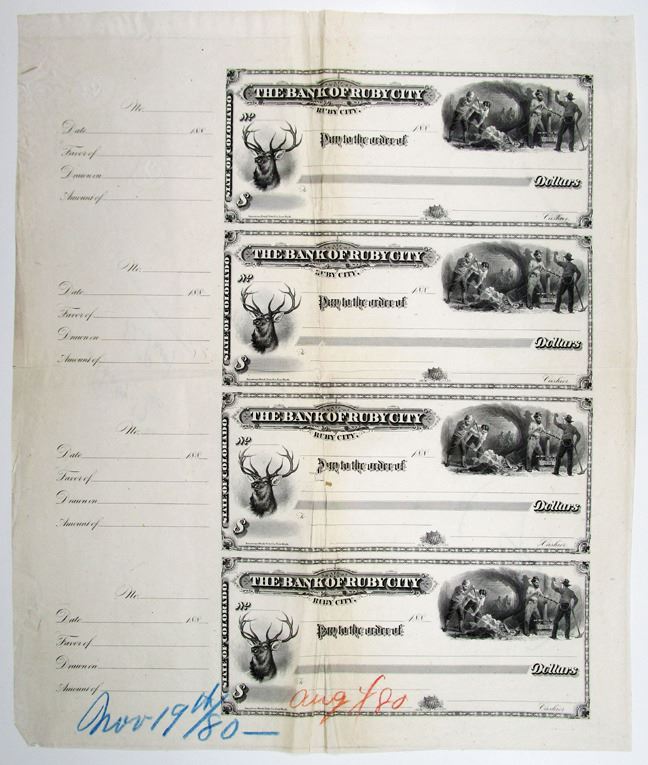 No.
Date 188
Favor of
Drawn on
Amount of
STATE OF COLORADO
THE BANK OF RUBY CITY
RUBY CITY,
No 188
Pay to the order of
Dollars
$
Cashier
No.
Date 188
Favor of
Drawn on
Amount of
STATE OF COLORADO
THE BANK OF RUBY CITY
RUBY CITY,
No 188
Pay to the order of
Dollars
$
Cashier
No.
Date 188
Favor of
Drawn on
Amount of
STATE OF COLORADO
THE BANK OF RUBY CITY
RUBY CITY,
No 188
Pay to the order of
Dollars
$
Cashier
No.
Date 188
Favor of
Drawn on
Amount of
STATE OF COLORADO
THE BANK OF RUBY CITY
RUBY CITY,
No 188
Pay to the order of
Dollars
$
Cashier
Nov 19th/80